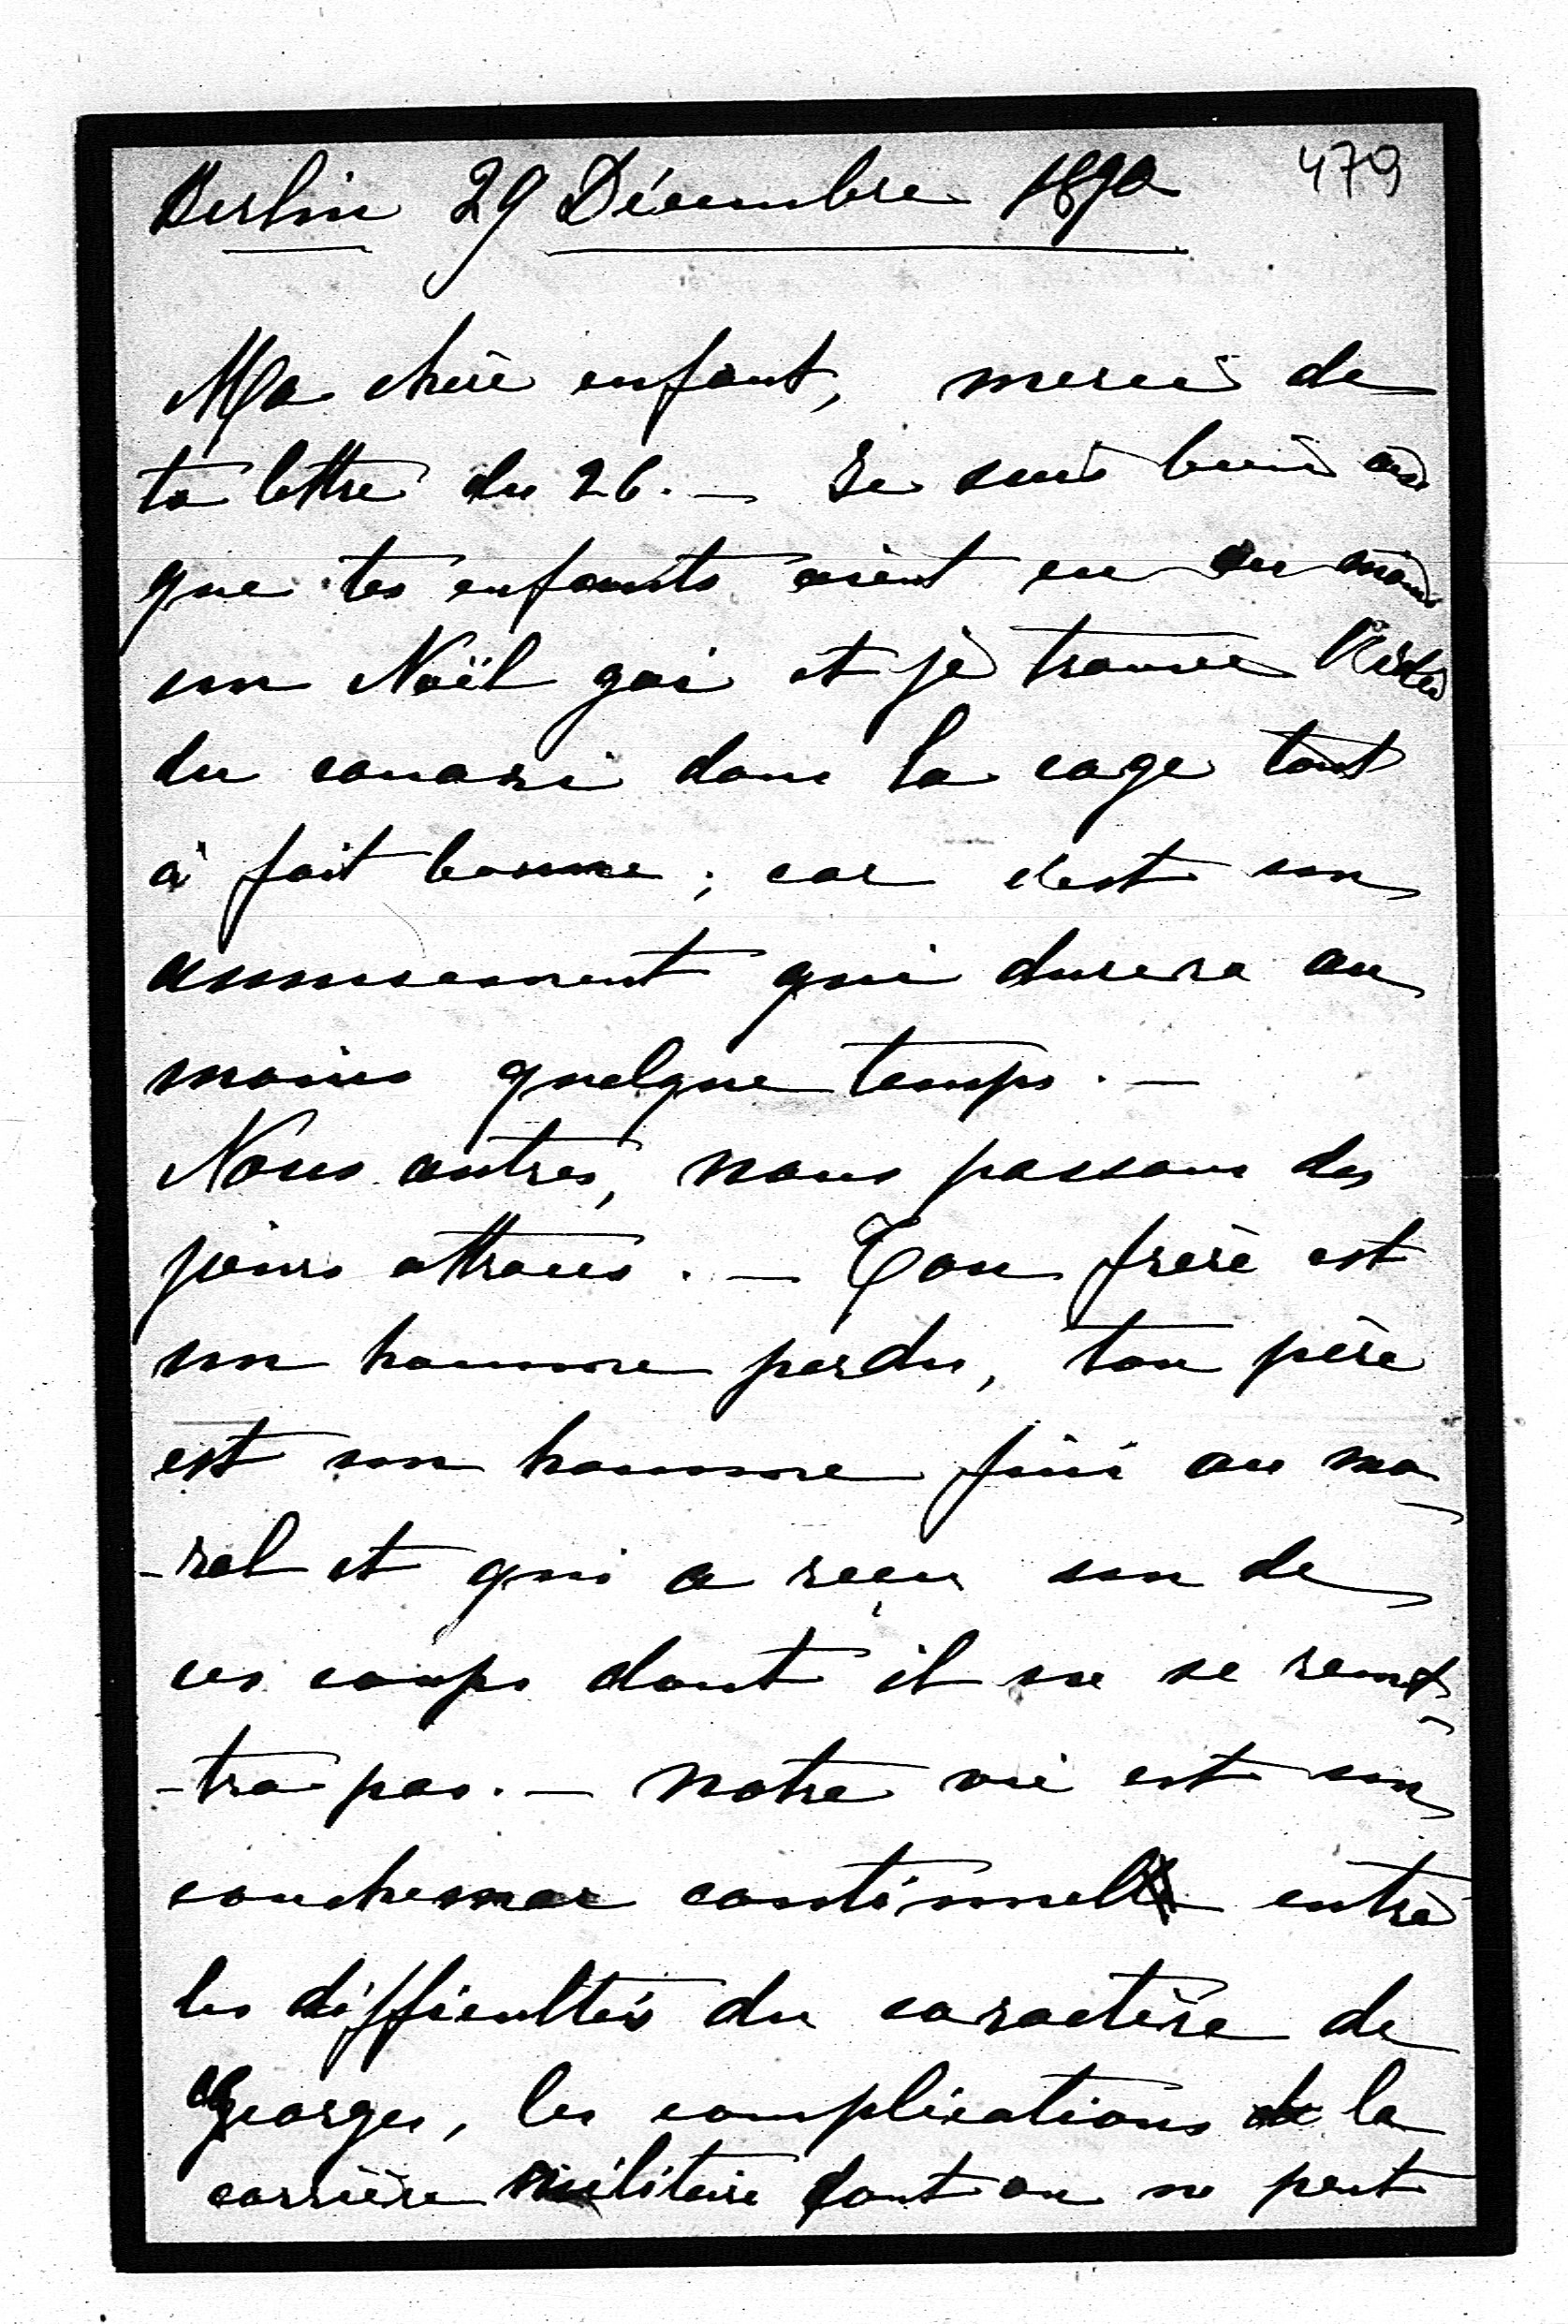 479
Berlin 29 Décembre 1890
Ma chère enfant, merci de
ta lettre du 26. — Je suis bien aise
que tes enfants aient eu au moins
un Noël gai et je trouve l'idée
du canari dans la cage tout
à fait bonne ; car c'est un
amusement qui durera au
moins quelque temps. —
Nous autres, nous passons des
jours atroces. — Ton frère est
un homme perdu, ton père
est un homme fini au mo-
-ral et qui a reçu un de
ces coups dont il ne se remet-
-tra pas. — Notre vie est un
cauchemar continuel entre
les difficultés du caractère de
Georges, les complications de la
carrière militaire dont on ne peut